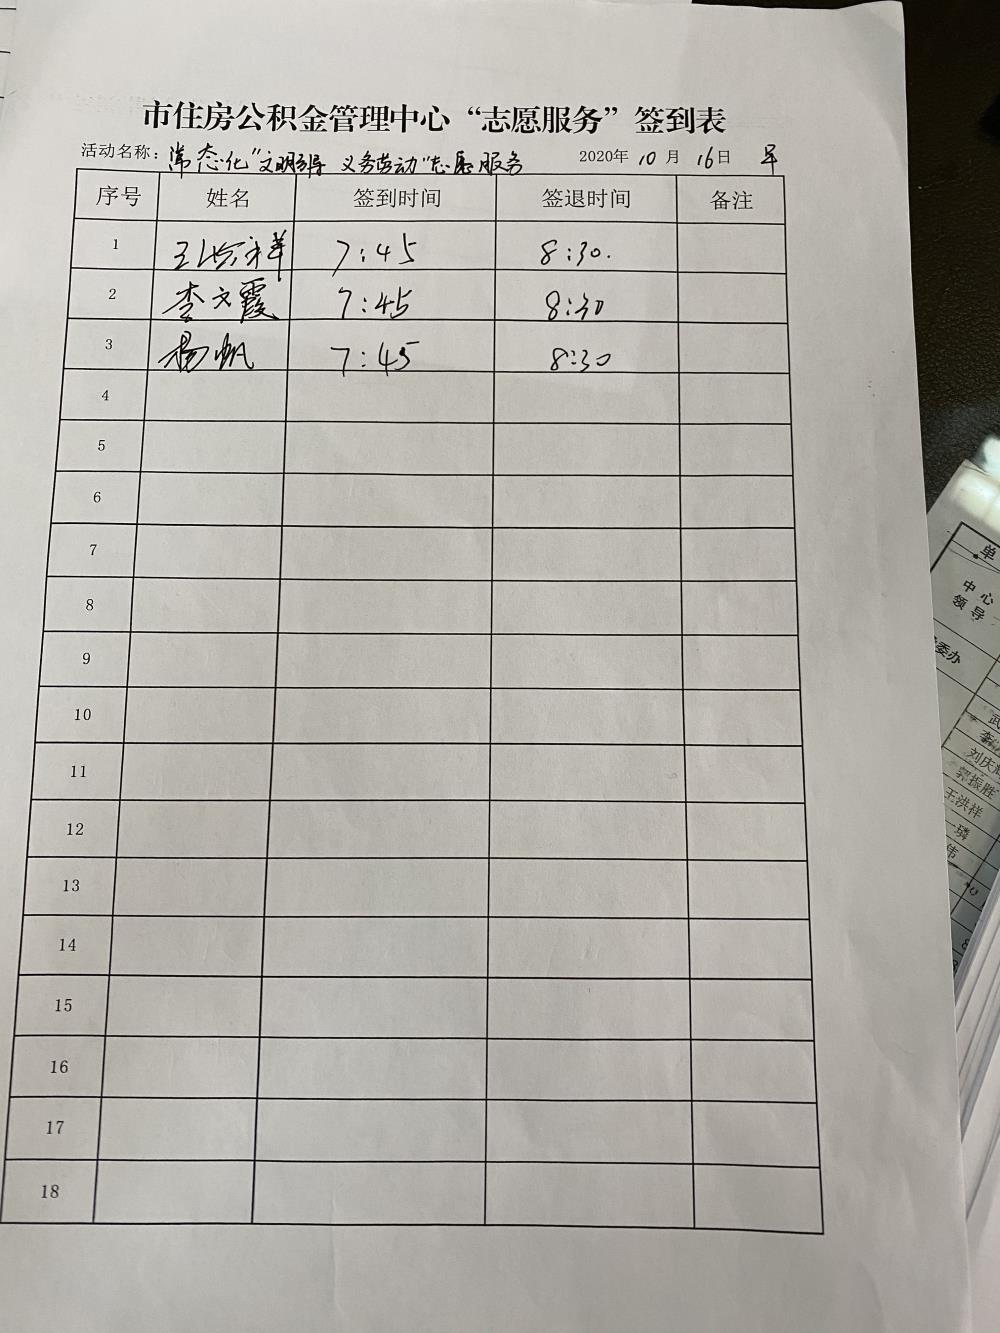 市住房公积金管理中心“志愿服务”签到表
活动名称：常态化“文明引导 义务劳动”志愿服务 2020年 10 月 16日 早
序号 姓名 签到时间 签退时间 备注
1 王洪祥 7:45 8:30.
2 李文霞 7:45 8:30
3 杨帆 7:45 8:30
4
5
6
7
8
9
10
11
12
13
14
15
16
17
18
单
中心
领导
委办
武
李
刘庆
郭振胜
王洪祥
一璘
伟